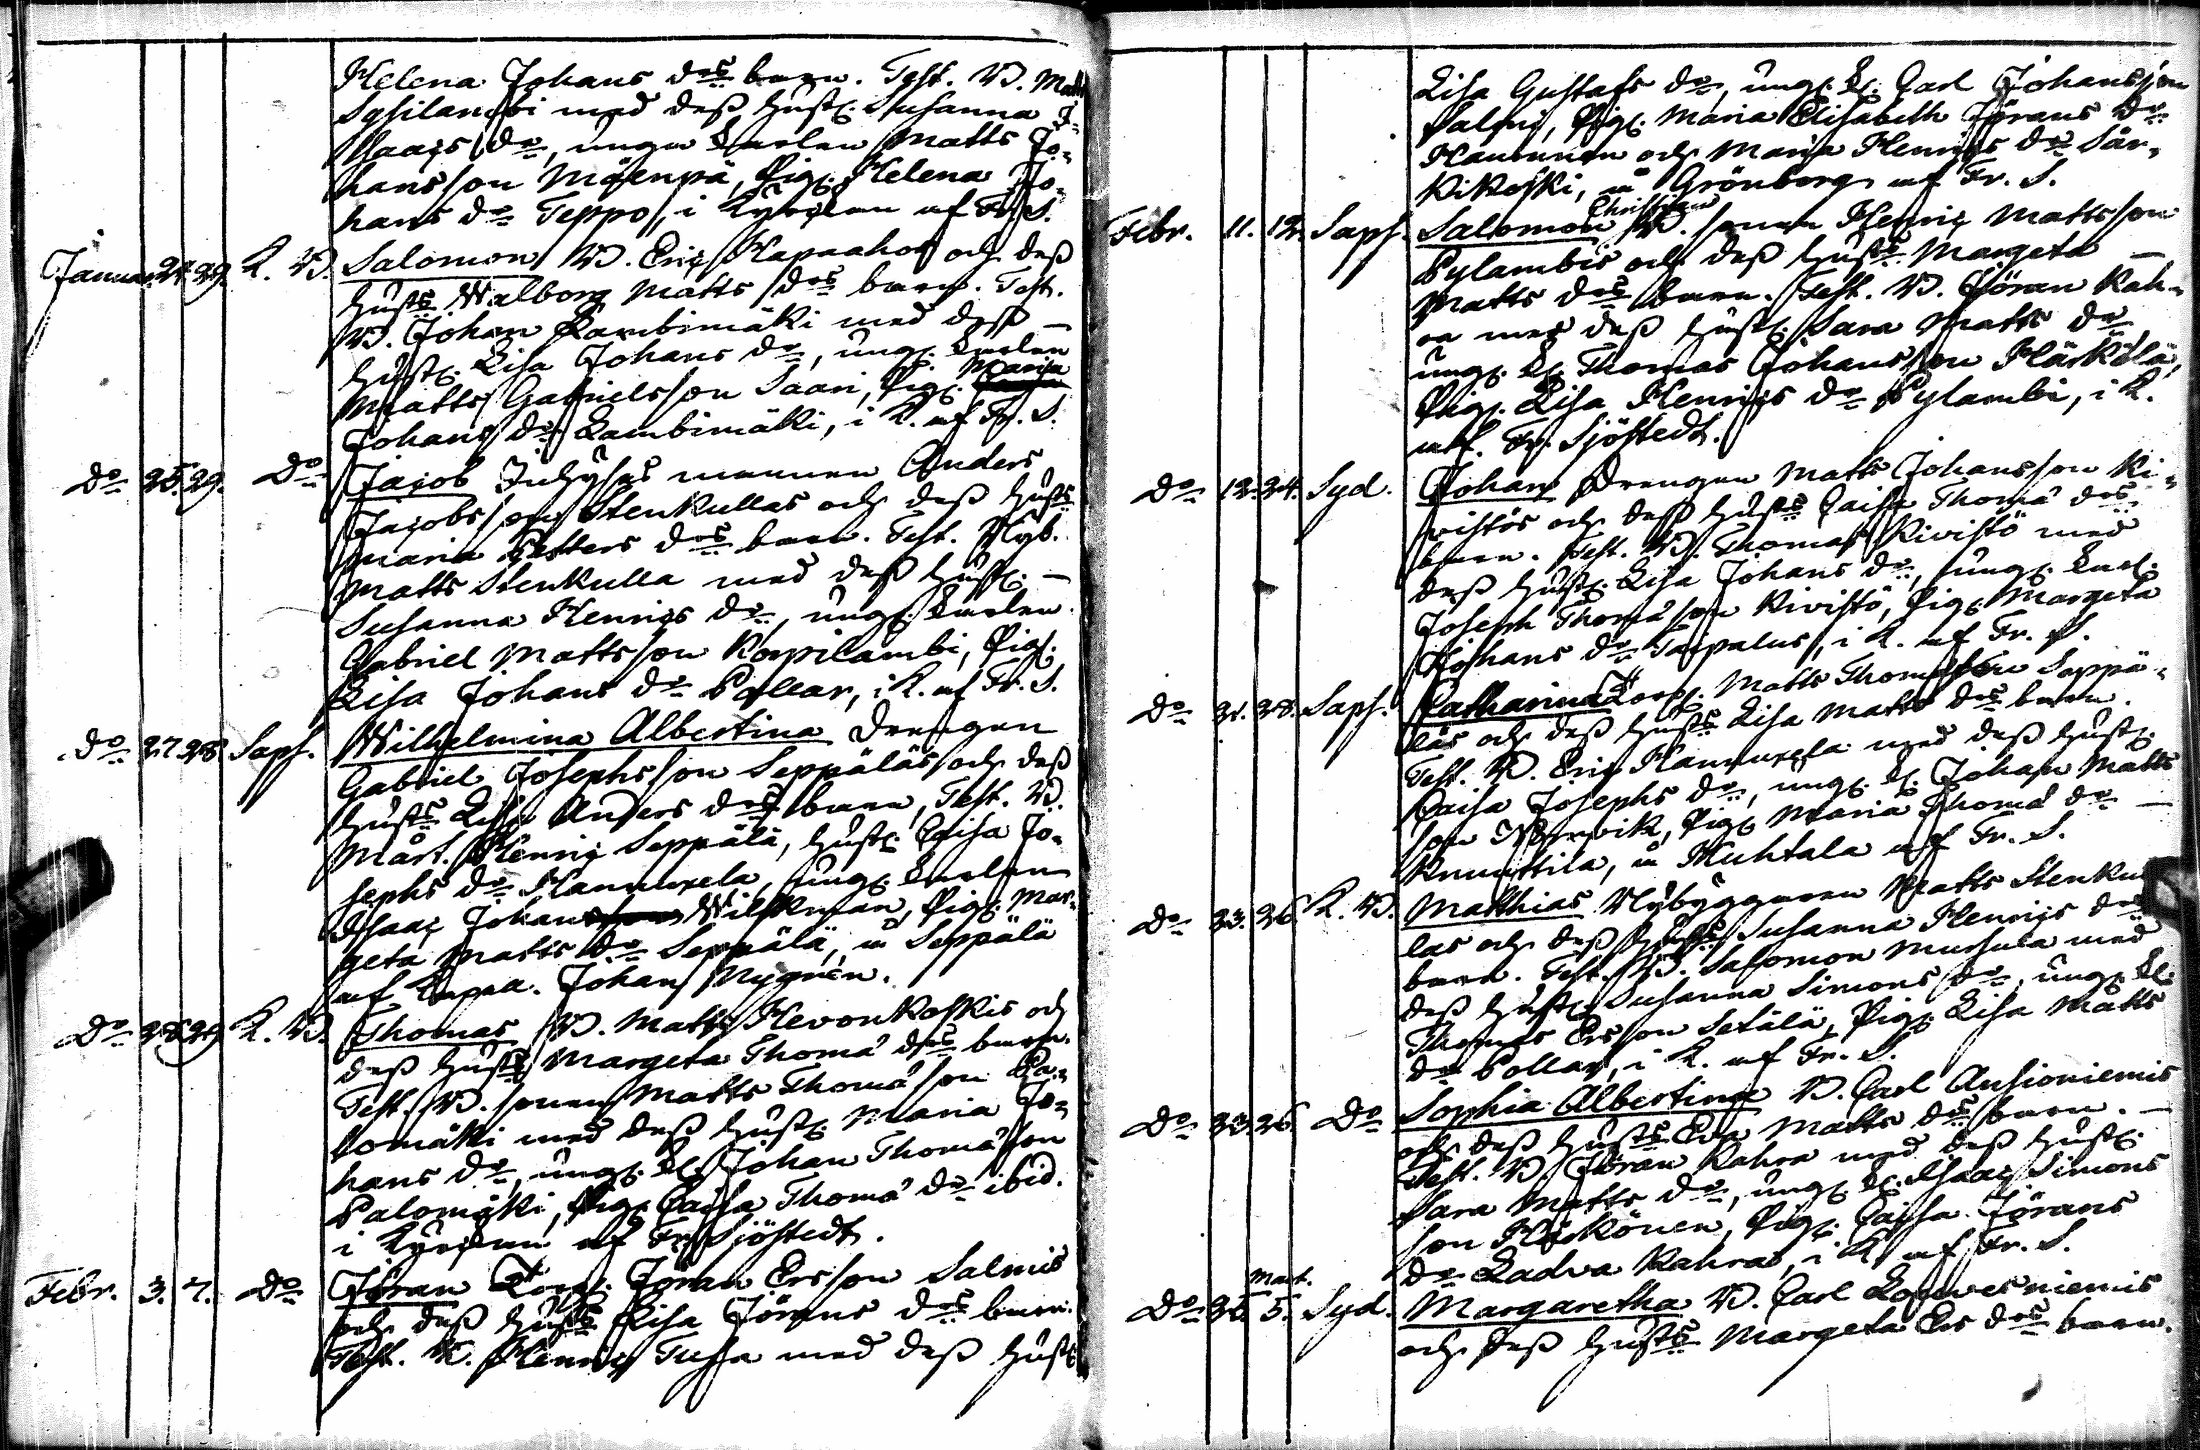 Helena Johans drs barn. Test. B. Matts
Sysilambi med dess hust. Susanna I-
saacs dr, unga Karlen Matts Jo-
hansson Mäenpä, Pig. Helena Jo-
hans dr Teppo, i Kyrckan af Fr. S.
Januar. 24. 29. K. B. Salomon B. Eric Hapaahos och dess
hustrs Walborg Matts drs barn. Test.
B. Johan Lambimäki med dess
hust. Lisa Johans dr, ung. Karlen
Matts Gabrielsson Saari, Pig. Maria
Johans dr Lambimäki, i K. af Fr. S.
Do 25. 29. Do Jacob Inhyses mannen Anders
Jacobsson Stenkullas och dess hustrs
Maria Petters drs barn. Test. Nyb.
Matts Stenkulla med dess hust.
Susanna Henrics dr, ung. Karlen
Gabriel Mattsson Korpilambi, Pig.
Lisa Johans dr Pollar, i K. af Fr. S.
Do 27. 28. Saph. Wilhelmina Albertina Drengen
Gabriel Josephsson Seppäläs och dess
hustrs Lisa Anders drs barn, Test. B.
Mårt. Henric Seppälä, hust. Caisa Jo-
sephs dr Hannuxela, ung. Karlen
Isaac Johan Wilkman, Pig. Mar-
geta Matts dr Seppälä, i Seppälä
af Cappa. Johan Nygrén.
Do 28. 29. K. B. Thomas B. Matts Hevonkoskis och
dess hustrs Margeta Thomæ drs barn.
Test. B. sonen Matts Thomæson Pa-
lomäki med dess hust. Maria Jo-
hans dr, ung. K. Johan Thomæson
Palomäki, Pig. Caisa Thomæ dr ibid.
i Kyrckan af Fr. Sjöstedt.
Febr. 3. 7. Do Jöran Torp. Jöran Ersson Salmis
och dess hustrs Lisa Jörans drs barn.
Test. B. Henric Tussa med dess hust.
Lisa Gustafs dr, ung. K. Carl Johansson
Salmi, Pig. Maria Elisabeth Jörans dr
Hanninen och Maria Henrics dr Sär-
kikoski, i Grönberg af Fr. S.
Febr. 11. 12. Saph. Salomon Christian B. sonen Henric Mattsson
Pylambis och dess hustrs Margeta
Matts drs barn. Test. B. Jöran Kah-
ra med dess hust. Sara Matts dr
ung. K. Thomas Johansson Härkölä,
Pig. Lisa Henrics dr Pylambi, i K.
af Fr. Sjöstedt.
Do 12. 24. Syd. Johan Drengen Matts Johansson Ki-
vistös och dess hustrs Caisa Thomæ drs
barn. Test. B. Thomas Kivistö med
dess hust. Lisa Johans dr, ung. Karl.
Joseph Thomæson Kivistö, Pig. Margeta
Johans dr Taipalus, i K. af Fr. S.
Do 21. 28. Saph. Catharina Torp. Matts Thomæson Seppä-
läs och dess hustrs Lisa Matts drs barn.
Test. B. Eric Hannuxela med dess hust.
Caisa Josephs dr, ung. K. Johan Matts
son Norrvik, Pig. Maria Thomæ dr
Knuuttila, i Huhtala af Fr. S.
Do 23. 26. K. B. Matthias Nybyggaren Matts Stenkul
las och dess hustrs Susanna Henrics drs
barn. Test. B. Salomon Mursula med
dess hust. Susanna Simons dr, ung. K.
Thomas Ersson Setälä, Pig. Lisa Matts
dr Pollar, i K. af Fr. S.
Do 23. 26. Do Sophia Albertina B. Carl Ansioniemis
och dess hustrs Eva Matts drs barn.
Test. B. Jöran Kahra med dess hust.
Sara Matts dr, ung. K. Isaac Simons
son Heikönen, Pig. Caisa Jörans
dr Ladva Kahras, i K. af Fr. S.
Mart.
Do 26. 5. Syd. Margaretha B. Carl Louvesniemis
och dess hustrs Margeta Ers drs barn.